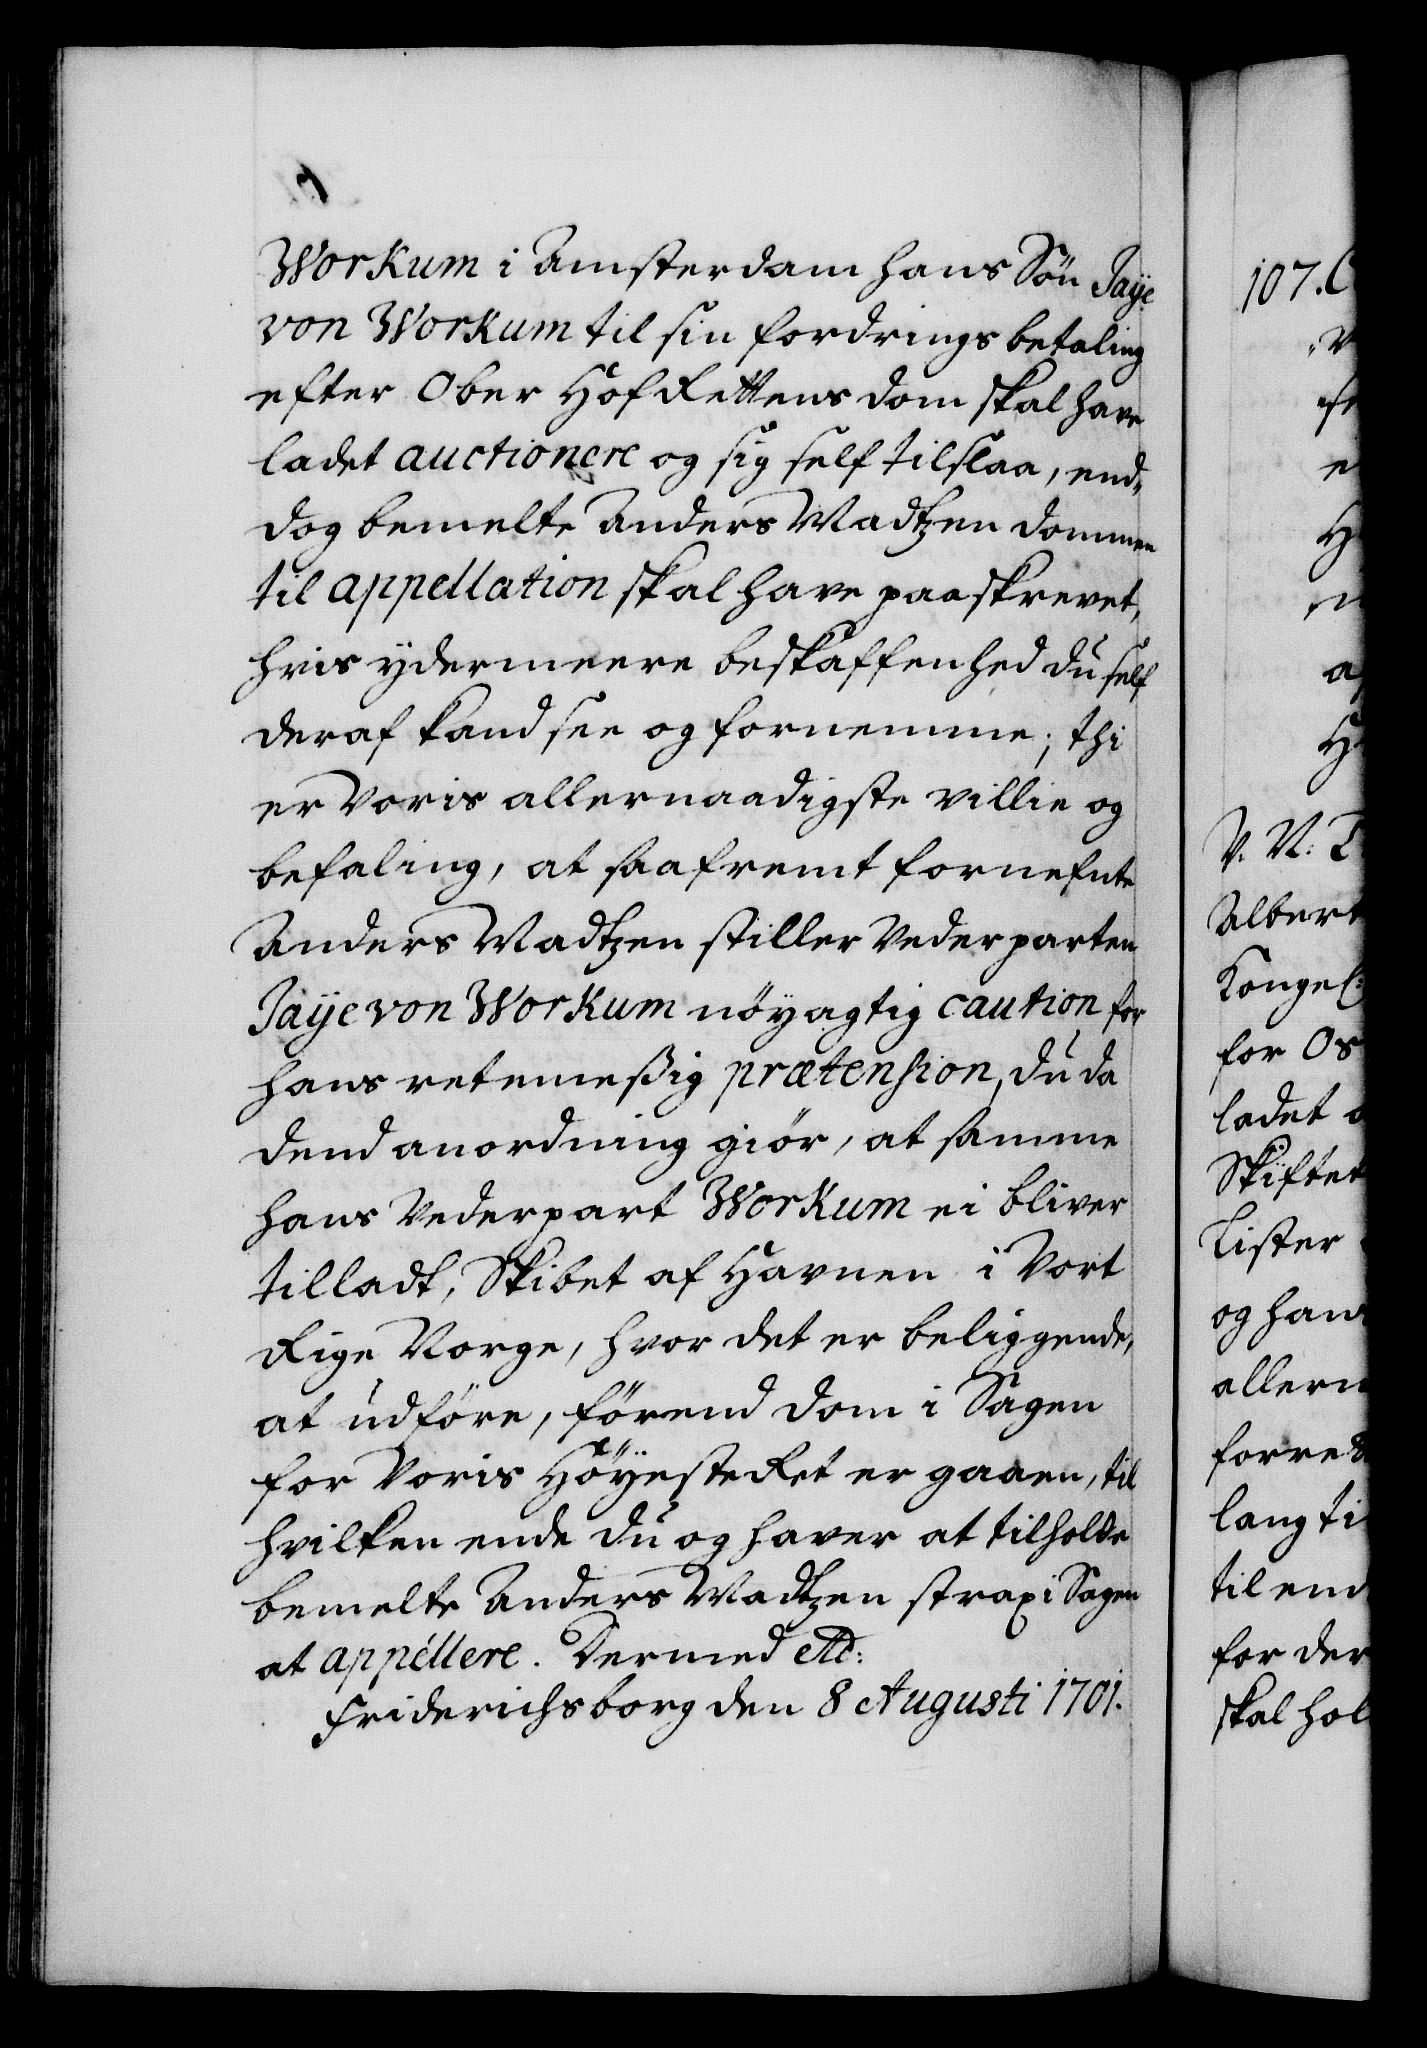 Workum i Amsterdam hans Søn Jaÿe
von Workum til sin fordrings betaling
efter Ober Hof Rettens dom skal have
ladet auctionere og sig self tilslaa, end„
dog bemelte Anders Madtzen dommen
til appellation skal have paaskrevet,
hvis ydermeere beskaffenhed du self
deraf kand see og fornemme; thi
er Voris allernaadigste villie og
befaling, at saafremt fornefnte
Anders Madtzen stiller Vederparten
Jaÿe von Workum nöyagtig caution for
hans retemeßig prætension, du da
dend anordning giör, at samme
hans Vederpart Workum ei bliver
tilladt, Skibet af Havnen i Vort
Rige Norge, hvor det er beliggende,
at udföre, förend dom i Sagen
for Voris Höÿeste Ret er gaaen, til
hvilken ende du og haver at tilholde
bemelte Anders Madtzen strax i Sagen
at appellere. Dermed etc:
Friderichsborg den 8 Augusti 1701.
107.
V. N: T
Albert
Kongel:
for Os
ladet
Skiftet
Lister
og hans
allern
forre
lang ti
til end
for der
skal hol